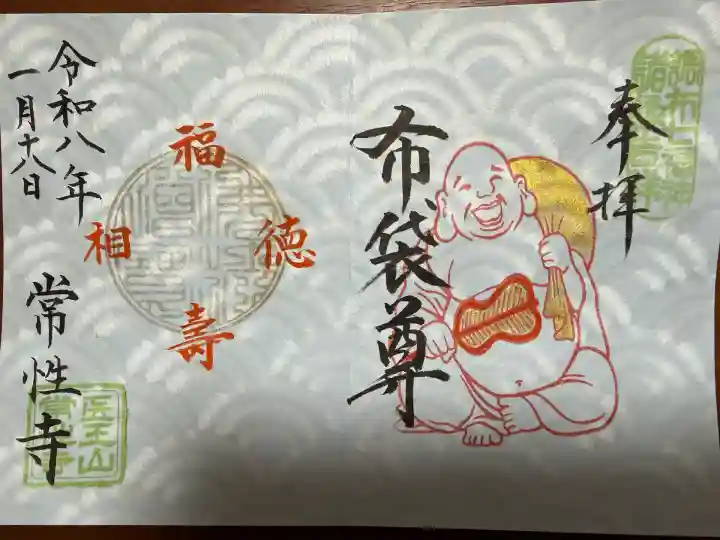 奉拝
布袋尊
福
徳
壽
相
令和八年
一月十八日
常性寺
医王山
常性寺